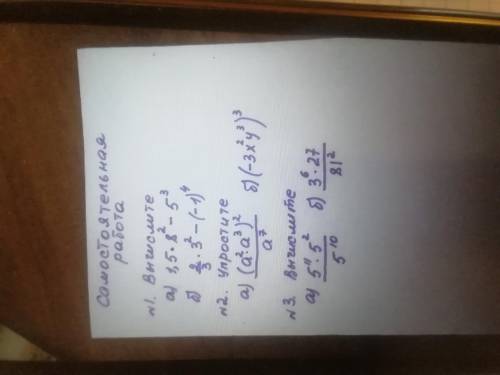 Самостоятельная
работа
№1. Вычислите
а) 1,5·8² – 5³
б) 2/3·3² – (-1)⁴
№2. Упростите
а) (a²·a³)²/a⁷ б) (-3x²y³)³
№3. Вычислите
а) 5¹¹·5²/5¹⁰ б) 3⁶·27/81²